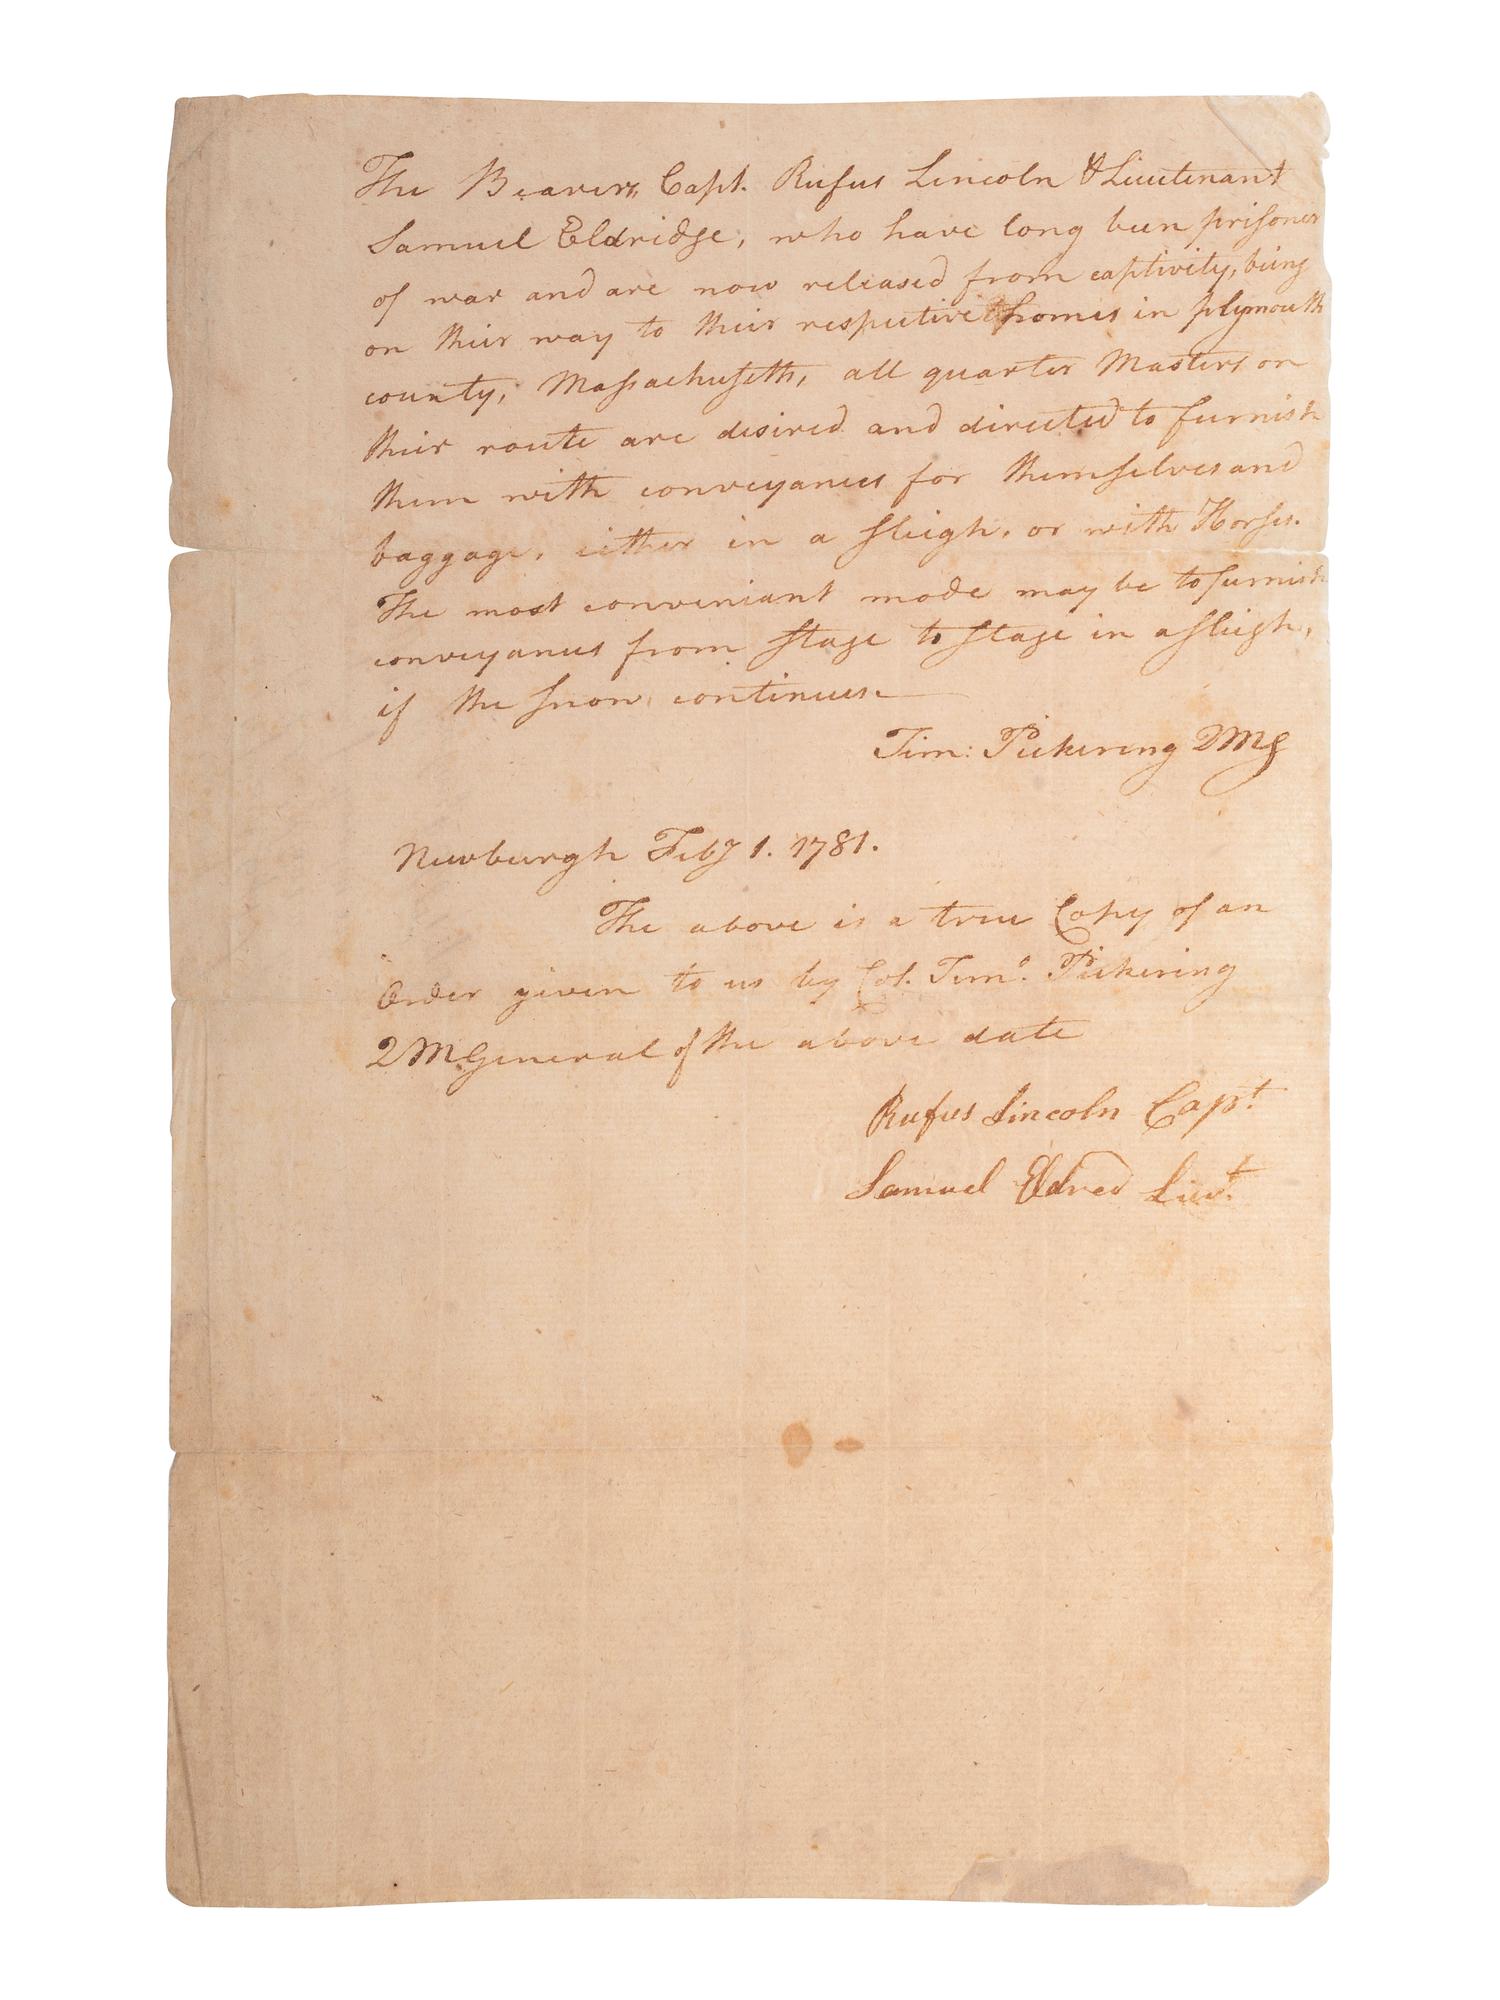 The Bearers, Capt. Rufus Lincoln & Lieutenant
Samuel Eldridge, who have long been prisoners
of war and are now released from captivity, being
on their way to their respective homes in plymouth
county, Massachusetts, all quarter Masters on
their route are desired and directed to furnish
them with conveyances for themselves and
baggage, either in a sleigh, or with Horses.
The most conveniant mode may be to furnish
conveyances from stage to stage in a sleigh,
if the snow continues.
Tim: Pickering QMG
Newburgh Feby 1. 1781.
The above is a true Copy of an
Order given to us by Col. Timo. Pickering
QMGeneral of the above date
Rufus Lincoln Capt
Samuel Eldred Lieut